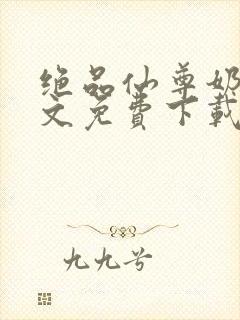 绝品仙尊奶
文免费下载
九九兮